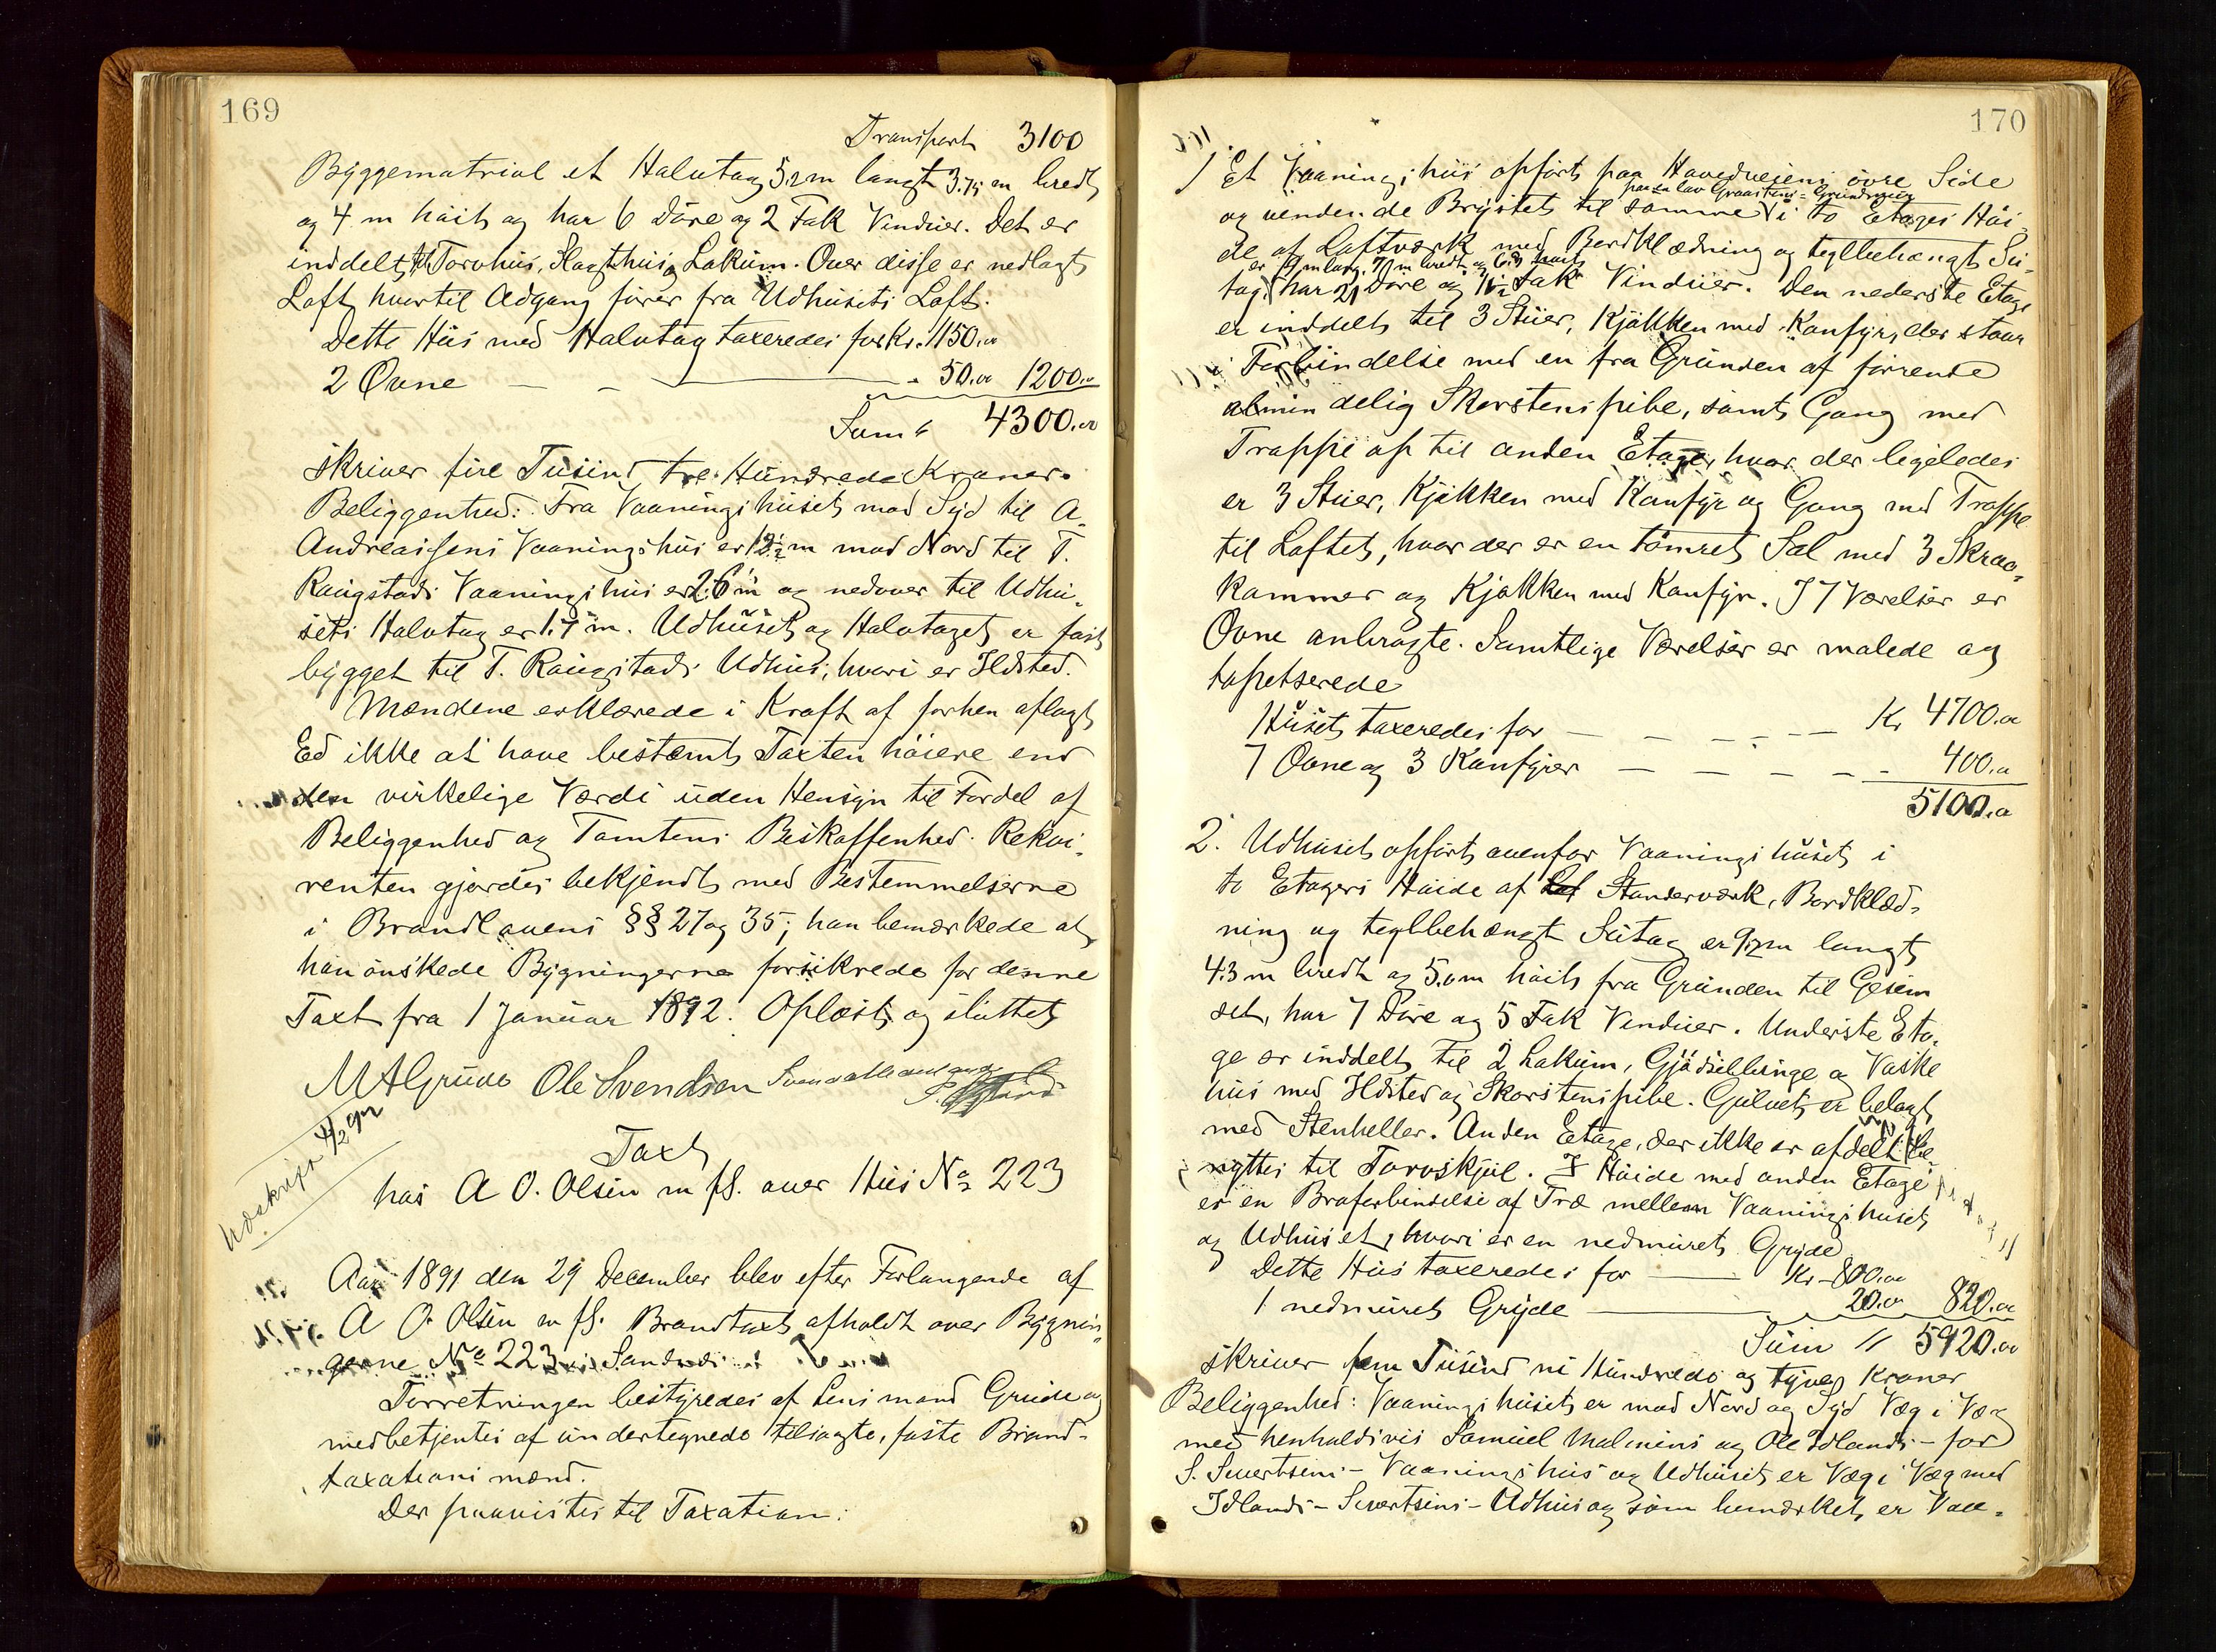 169
Transport 3100
Byggematrial et Halvtag 5.2 m langt 3.75 m bredt
og 4 m høit og har 6 Døre og 2 Fak Vinduer. Det er
inddelt til Torvhus, Slagthus og Lokum. Over disse er nedlagt
Loft hvortil Adgang fører fra Udhusets Loft.
Dette Hus med Halvtag taxeredes for Kr. 1150.00
2 Ovne — — — " 50.00 1200.00
Sum 4300.00
skriver fire Tusind tre Hundrede Kroner.
Beliggenhed: Fra Vaaningshuset mod Syd til A.
Andreassens Vaaningshus er 12½ m mod Nord til T.
Raugstads Vaaningshus er 2.6 m og nedover til Udhu-
sets Halvtag er 1.7 m. Udhuset og Halvtaget er fast
bygget til T. Raugstads Udhus, hvori er Ildsted.
Mændene erklærede i Kraft af forhen aflagt
Ed ikke at have bestemt Taxten høiere end
den virkelige Værdi uden Hensyn til Fordel af
Beliggenhed og Tomtens Beskaffenhed. Rekvi-
renten gjordes bekjendt med Bestemmelserne
i Brandlovens §§ 27 og 35; han bemærkede at
han ønskede Bygningerne forsikrede for denne
Taxt fra 1 Januar 1892. Oplæst og sluttet
M A Grude Ole Svendsen
4/2 92
Taxt
hos A O. Olsen m fl. over Hus No 223
Aar 1891 den 29 December blev efter Forlangende af
A O. Olsen m fl. Brandtaxt afholdt over Bygnin-
gerne No 223 i Sandnes
Forretningen bestyredes af Lensmand Grude og
medbetjentes af undertegnede tilsagte, faste Brand-
taxationsmænd.
Der paavistes til Taxation:
170
1 Et Vaaningshus opført paa Hovedveiens øvre Side
paa en lav Graastens-Grundmur
og vendende Brystet til samme i to Etages Høi-
de af Laftværk med Bordklædning og teglbehængt Su-
er m lang, 7 m bredt og 6.3 høit
tag, har 21 Døre og 16½ Fak Vinduer. Den nederste Etage
er inddelt til 3 Stuer, Kjøkken med Komfyr, der staar
i Forbindelse med en fra Grunden af førende
almindelig Skorstenspibe, samt Gang med
Trappe op til anden Etage, hvor der ligeledes
er 3 Stuer, Kjøkken med Komfyr og Gang med Trappe
til Loftet, hvor der er en tømret Sal med 3 Skraa-
kammer og Kjøkken med Komfyr. I 7 Værelser er
Ovne anbragte. Samtlige Værelser er malede og
tapetserede
Huset taxeredes for — — — — Kr 4700.00
7 Ovne og 3 Komfyrer — — — — — 400.00
5100.00
2. Udhuset opført ovenfor Vaaningshuset i
to Etagers Høide af Standerværk, Bordklæd-
ning og teglbehængt Sutag er 9.2 m langt
4.3 m bredt og 5.0 m høit fra Grunden til Gesim
set, har 7 Døre og 5 Fak Vinduer. Underste Eta-
ge er inddelt til 2 Lokum, Gjødselbinge og Vaske
hus med Ildsted og Skorstenspibe. Gulvet er belagt
med Stenheller. Anden Etage, der ikke er afdelt be-
nyttes til Torvskjul. I Høide med anden Etage
er en Broforbindelse af Træ mellem Vaaningshuset
og Udhuset, hvori er en nedmuret Gryde
Dette Hus taxeredes for — Kr 800.00
1 nedmuret Gryde — 20.00 820.00
Sum 5920.00
skriver fem Tusind ni Hundrede og tyve Kroner
Beliggenhed: Vaaningshuset er mod Nord og Syd Væg i Væg
med henholdsvis Samuel Malmins og Ole Idlands - for
S. Sivertsens - Vaaningshus og Udhuset er Væg i Væg med
Idlands - Sivertsens - Udhus og som bemærket er Vaa-